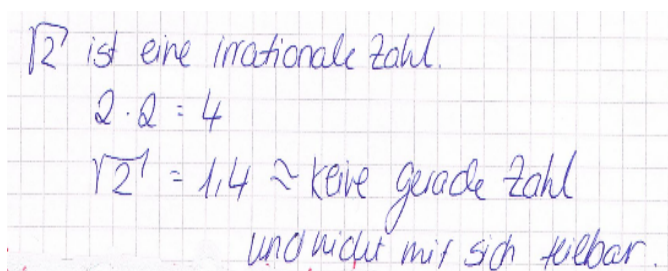 √2 ist eine irrationale Zahl.
2 · 2 = 4
√2 = 1,4 ≈ keine gerade Zahl
und nicht mit sich teilbar.